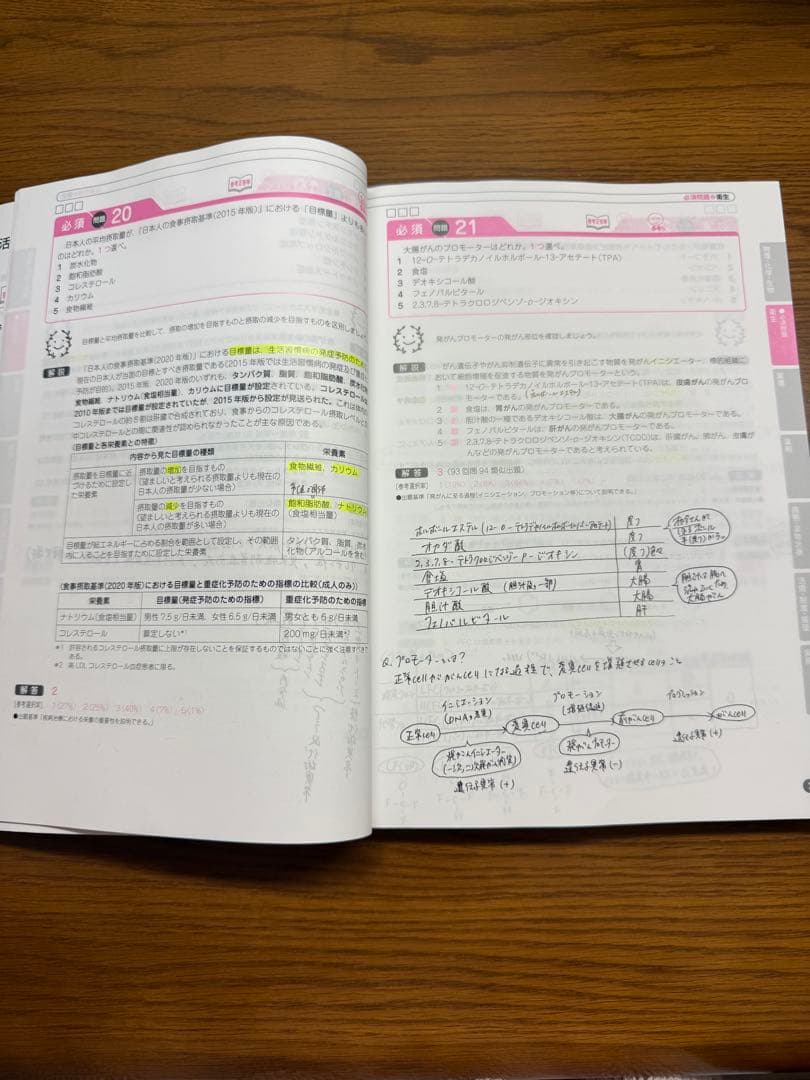 必須 問題 20
日本人の平均摂取量が,「日本人の食事摂取基準(2015年版)」における「目標量」よりも
のはどれか。1つ選べ。
1 炭水化物
2 飽和脂肪酸
3 コレステロール
4 カリウム
5 食物繊維
目標量と平均摂取量を比較して、摂取の増加を目指すものと摂取の減少を目指すものを区別しましょ
解説 「日本人の食事摂取基準(2020年版)」における目標量は、生活習慣病の発症予防のため
現在の日本人が当面の目標とすべき摂取量である(2015年版では生活習慣病の発症及び
予防が目的)。2015年版、2020年版のいずれも、タンパク質、脂質、飽和脂肪酸、炭水
食物繊維、ナトリウム(食塩相当量)、カリウムに目標量が設定されている。コレステロール
2010年版までは目標量が設定されていたが、2015年版から設定が見送られた。これは
コレステロールの約8割は肝臓で合成されており、食事からのコレステロール摂取レベルと
中コレステロールとの間に関連性が認められなかったことが主な原因である。
〈目標量と各栄養素との特徴〉
内容から見た目標量の種類 栄養素
摂取量を目標量に近づけるために設定した栄養素
摂取量の増加を目指すもの(望ましいと考えられる摂取量よりも現在の日本人の摂取量が少ない場合) 食物繊維、カリウム
摂取量の減少を目指すもの(望ましいと考えられる摂取量よりも現在の日本人の摂取量が多い場合) 飽和脂肪酸、ナトリウム(食塩相当量)
目標量が総エネルギーに占める割合を範囲として設定し、その範囲内に入ることを目指すために設定した栄養素 タンパク質、脂質、炭水化物(アルコールを含
〈食事摂取基準(2020年版)における目標量と重症化予防のための指標の比較(成人のみ)〉
栄養素 目標量(発症予防のための指標) 重症化予防のための指標
ナトリウム(食塩相当量) 男性7.5g/日未満、女性6.5g/日未満 男女とも6g/日未満
コレステロール 算定しない*1 200mg/日未満*2
*1 許容されるコレステロール摂取量に上限が存在しないことを保証するものではないことに強く注意すべきで
*2 高LDLコレステロール血症患者に限る。
解答 2
[参考選択率] 1(27%) 2(25%) 3(40%) 4(7%) 5(1%)
●出題基準「疾病治療における栄養の重要性を説明できる。」
必須問題 衛生
必須 問題 21
64%
大腸がんのプロモーターはどれか。1つ選べ。
1 12-O-テトラデカノイルホルボール-13-アセテート(TPA)
2 食塩
3 デオキシコール酸
4 フェノバルビタール
5 2,3,7,8-テトラクロロジベンゾ-p-ジオキシン
発がんプロモーターの発がん部位を確認しましょう。
解説 がん遺伝子やがん抑制遺伝子に異常を引き起こす物質を発がんイニシエーター、標的組織に
おいて細胞増殖を促進する物質を発がんプロモーターという。
1 12-O-テトラデカノイルホルボール-13-アセテート(TPA)は、皮膚がんの発がんプロ
モーターである。
2 食塩は、胃がんの発がんプロモーターである。
3 胆汁酸の一種であるデオキシコール酸は、大腸がんの発がんプロモーターである。
4 フェノバルビタールは、肝がんの発がんプロモーターである。
5 2,3,7,8-テトラクロロジベンゾ-p-ジオキシン(TCDD)は、肝臓がん、肺がん、皮膚が
んなどの発がんプロモーターであると考えられている。
解答 3 (93回問94 類似出題)
●出題基準「発がんに至る過程(イニシエーション、プロモーション等)について説明できる。」
ホルボールエステル (12-O-テトラデカノイルホルボール-13-アセテート) 皮フ
オカダ酸 皮フ
2,3,7,8-テトラクロロジベンゾ-P-ジオキシン (皮フ)
食塩 胃
デオキシコール酸 (胆汁酸の一部) 大腸
胆汁酸 大腸
フェノバルビタール 肝
Q. プロモーターとは?
正常cellががんcellになる過程で、変異cellを増殖させること
イニシエーション (DNAの変異)
プロモーション (増殖促進)
プログレッション
正常cell 変異cell 前がんcell がんcell
発がんイニシエーター
遺伝子異常 (+)
発がんプロモーター
遺伝子異常 (-)
遺伝子異常 (+)